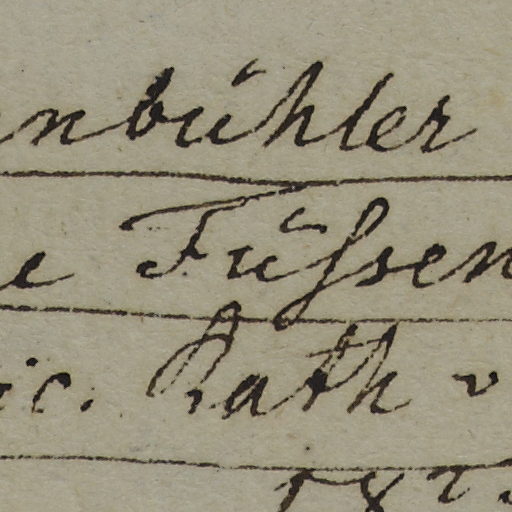 nbühler
e Füssen
ic. Rath v
182